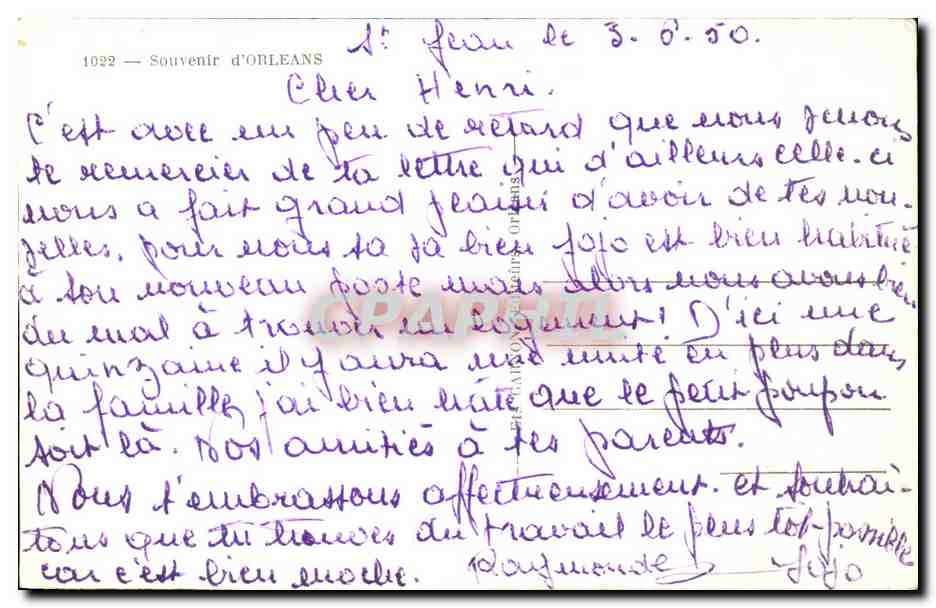 St Jean le 3.6.50.
1022 — Souvenir d'ORLEANS
Cher Henri.
C'est avec un peu de retard que nous venons
te remercier de ta lettre qui d'ailleurs celle-ci
nous a fait grand plaisir d'avoir de tes nou-
velles, pour nous sa va bien Jojo est bien habitué
à son nouveau poste mais alors nous avons bien
du mal à trouver un logement! D'ici une
quinzaine il y aura une unité en plus dans
la famille, j'ai bien hâte que le petit poupon
soit là. Nos amitiés à tes parents.
Nous t'embrassons affectueusement. et souhai-
tons que tu trouves du travail le plus tôt possible
car c'est bien moche. Raymonde Jojo
CPARHI
orléans